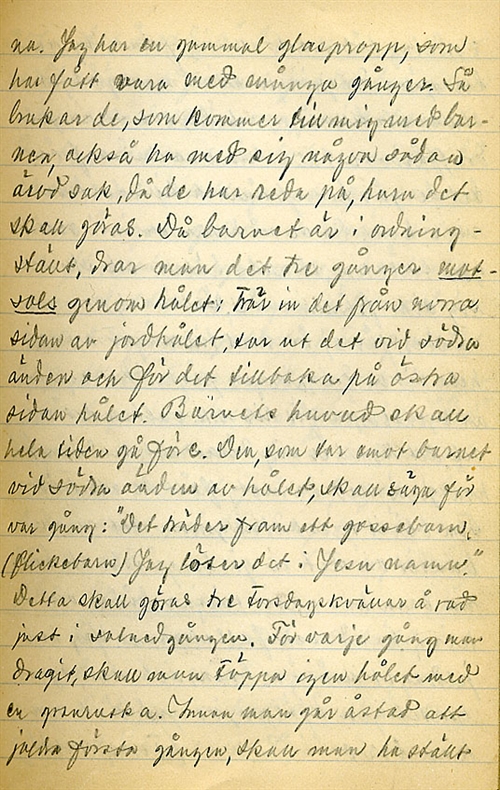 na. Jag har en gammal glaspropp, som
har fått vara med många gånger. Så
brukar de, som kommer till mig med bar-
nen, också ha med sig någon sådan
ärvd sak, då de har reda på, huru det
skall göras. Då barnet är i ordning-
ställt, drar man det tre gånger mot-
sols genom hålet: Trär in det från norra
sidan av jordhålet, tar ut det vid södra
änden och för det tillbaka på östra
sidan hålet. Barnets huvud skall
hela tiden gå före. Den, som tar emot barnet
vid södra änden av hålet, skall säga för
var gång: "Det träder fram ett gossebarn,
(flickebarn) Jag löser det i Jesu namn."
Detta skall göras tre torsdagskvällar å rad
just i solnedgången. För varje gång man
dragit, skall man täppa igen hålet med
en granruska. Innan man går åstad att
jorda första gången, skall man ha ställt